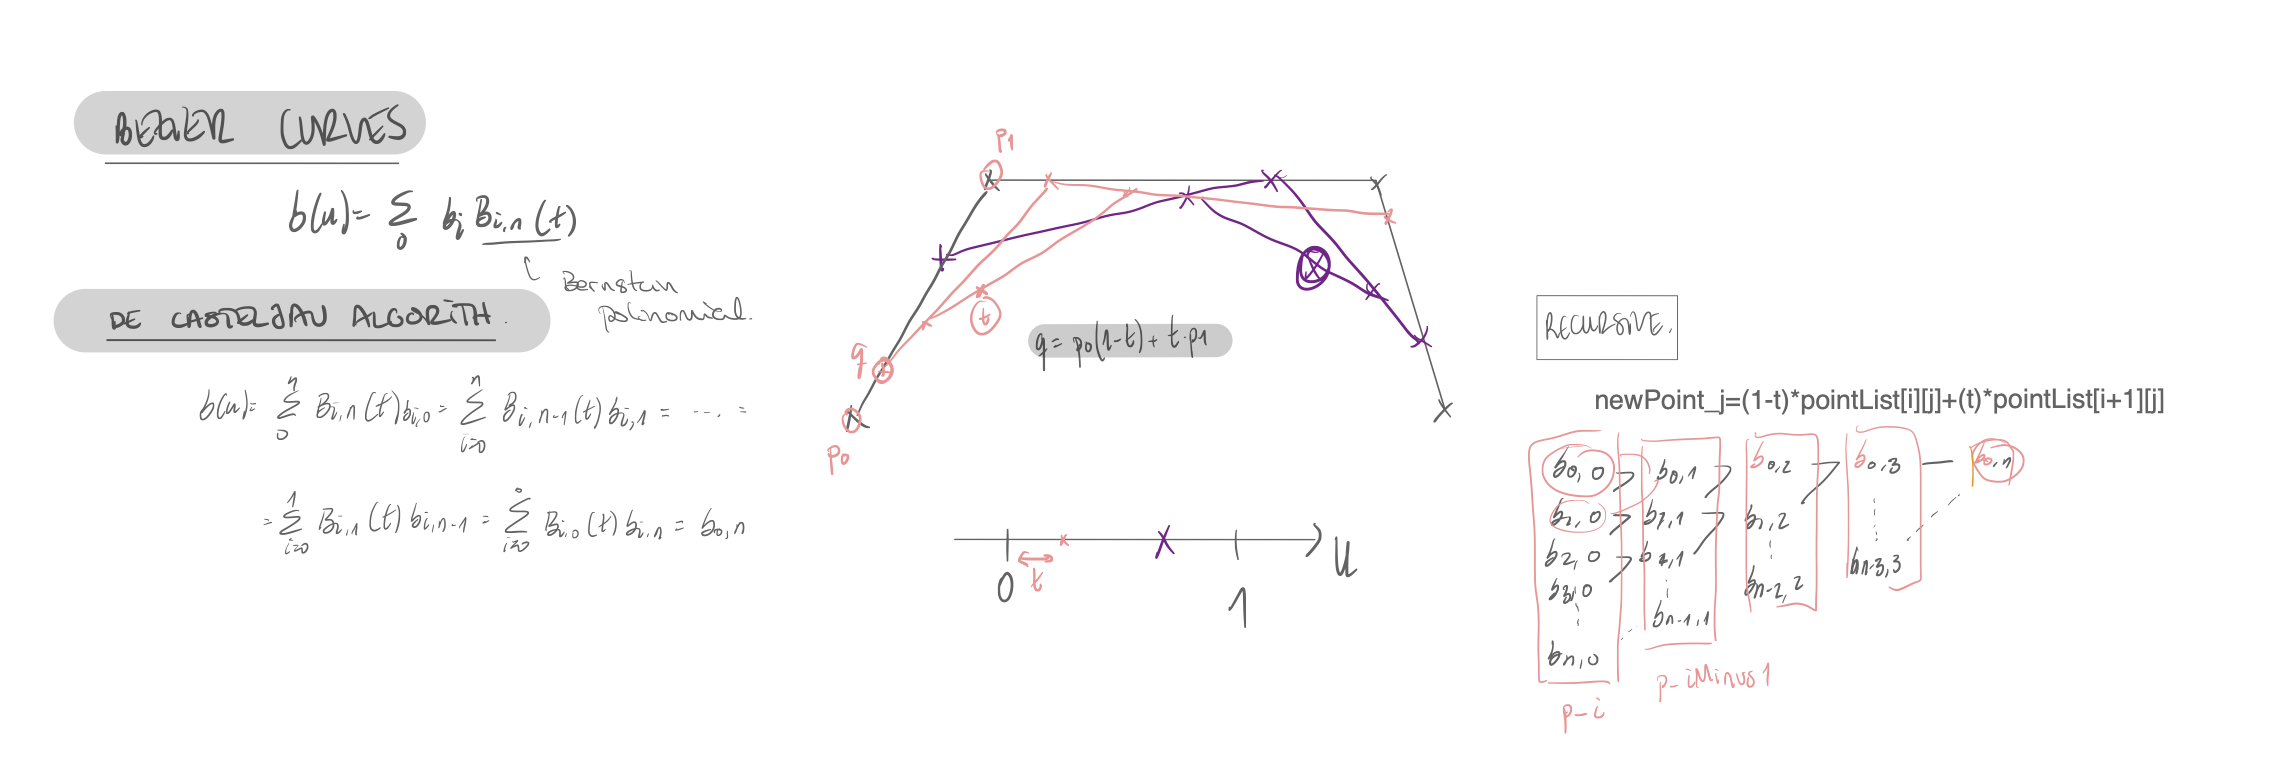 BEZIER CURVES
b(u)= Σ 0 bi Bi,n (t)
Bernstein
polinomial.
DE CASTELJAU ALGORITH.
b(u)= Σ n 0 Bi,n (t) bi,0 = Σ n i=0 Bi,n-1 (t) bi,1 = .... =
= Σ 1 i=0 Bi,1 (t) bi,n-1 = Σ 0 i=0 Bi,0 (t) bi,n = b0,n
p1
t
q
q = p0(1-t) + t·p1
p0
0
t
1
u
RECURSIVE.
newPoint_j=(1-t)*pointList[i][j]+(t)*pointList[i+1][j]
b0,0 b0,1 b0,2 b0,3 b0,n
b1,0 b1,1 b1,2
b2,0 b2,1 bn-3,3
b3,0 bn-2,2
bn-1,1
bn,0
p-iMinus1
p-i